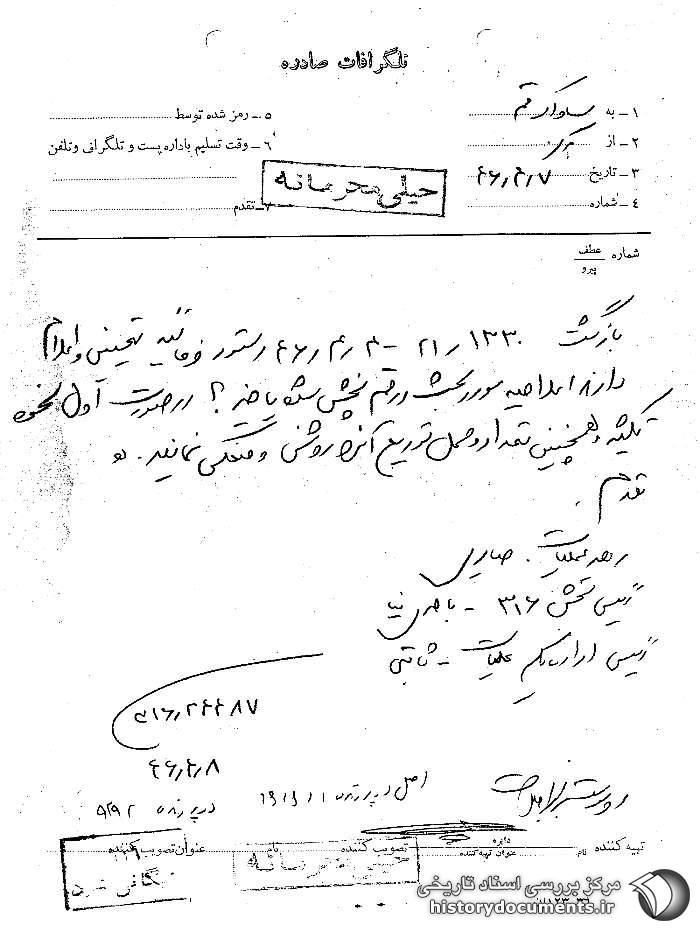 تلگرافات صادره
۱ـ به ساواک قم
۲ـ از مرکز
۳ـ تاریخ ۴۶٫۴٫۷
۴ـ شماره
۵ـ رمز شده توسط
۶ـ وقت تسلیم باداره پست و تلگراف و تلفن
خیلی محرمانه
۷ـ تقدم
شماره عطف
پیرو
بازگشت ۱۳۳۰ / ۲۱ - ۴٫۴٫۴۶ دستور فرمائید تحقیق و اعلام
دارند اعلامیه مورد بحث در قم پخش شده یا خیر؟ در صورت اول نحوه
تکثیر و همچنین تعداد و محل توزیع آنرا روشن و منعکس نمایند.
مقدم
رهبر عملیات. صابری
رئیس بخش ۳۱۶ -
رئیس اداره یکم عملیات - ثابتی
۳۱۶٫۲۴۴۸۷
۴۶٫۴٫۸
اصل در پرونده
در پرونده
تهیه کننده
نام
دایره
عنوان تهیه کننده
تصویب کننده
نام
عنوان تصویب کننده
خیلی محرمانه
بایگانی شود
مرکز بررسی اسناد تاریخی
historydocuments.ir